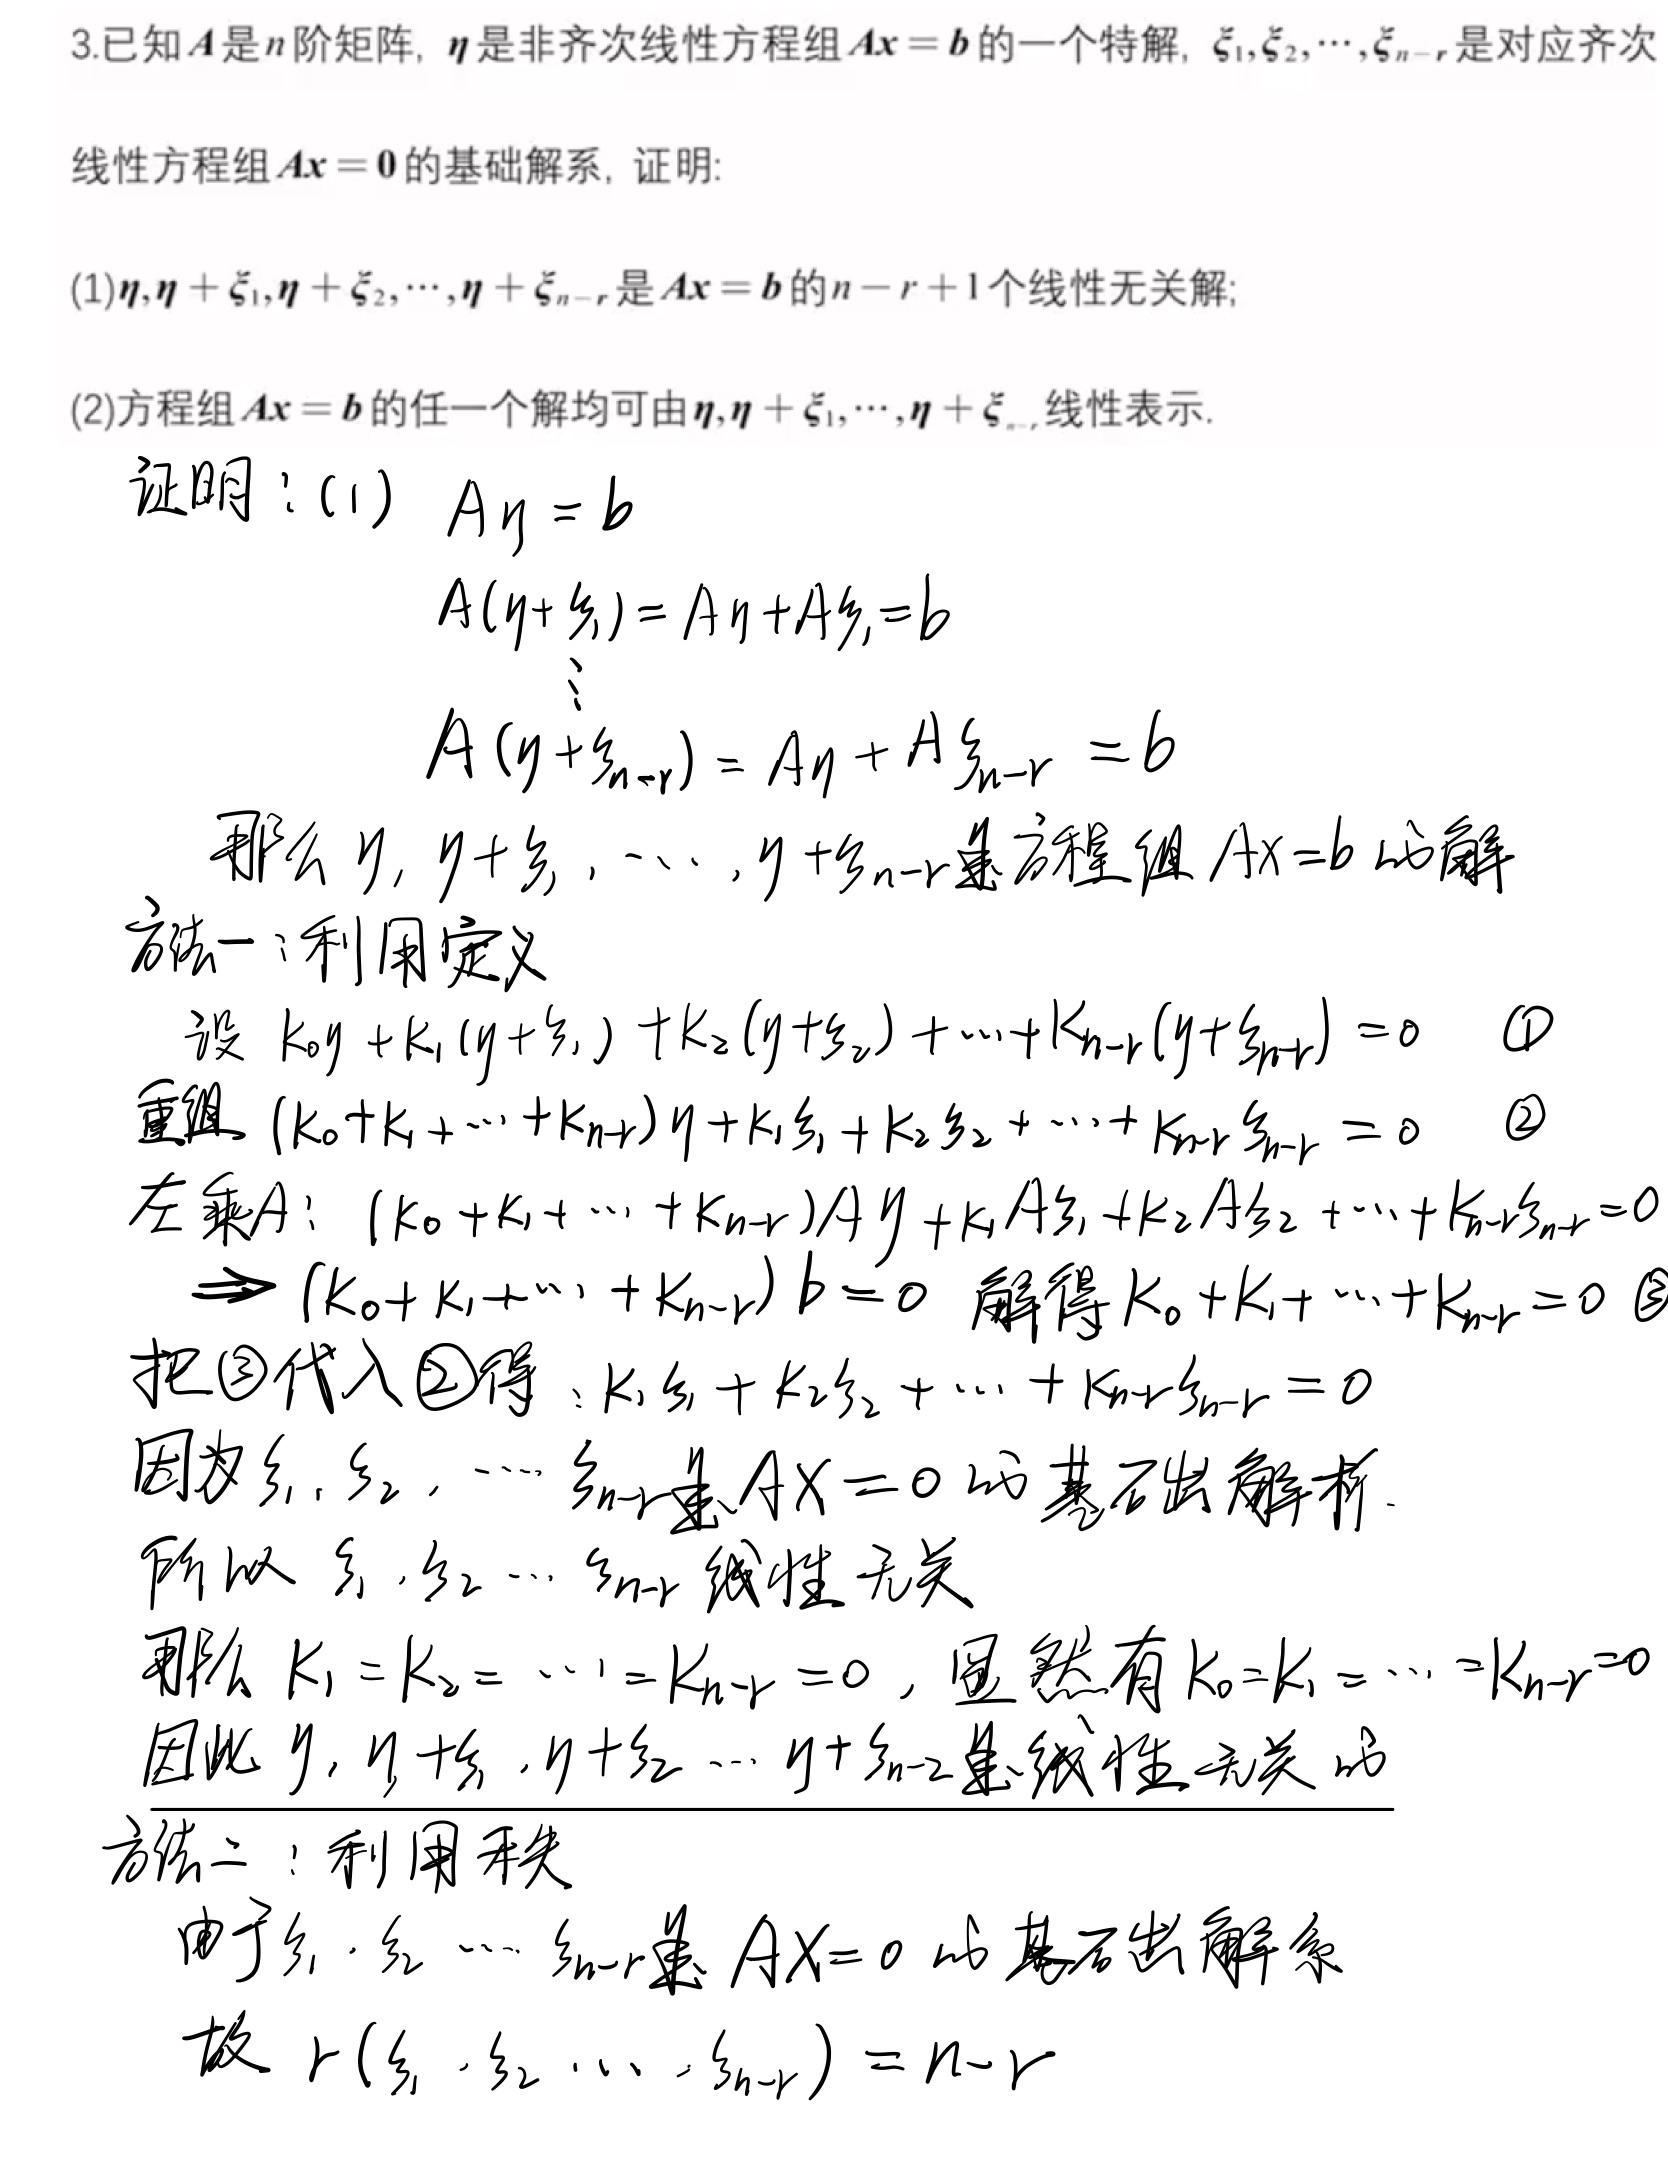 3.已知A是n阶矩阵, η是非齐次线性方程组Ax=b的一个特解, ξ₁,ξ₂,⋯,ξₙ₋ᵣ是对应齐次
线性方程组Ax=0的基础解系, 证明:
(1)η,η+ξ₁,η+ξ₂,⋯,η+ξₙ₋ᵣ是Ax=b的n-r+1个线性无关解;
(2)方程组Ax=b的任一个解均可由η,η+ξ₁,⋯,η+ξₙ₋ᵣ线性表示.
证明:(1) Aη=b
A(η+ξ₁)=Aη+Aξ₁=b
⋮
A(η+ξₙ₋ᵣ)=Aη+Aξₙ₋ᵣ=b
那么 η, η+ξ₁, ⋯, η+ξₙ₋ᵣ是方程组 AX=b 的解
方法一:利用定义
设 k₀η+k₁(η+ξ₁)+k₂(η+ξ₂)+⋯+kₙ₋ᵣ(η+ξₙ₋ᵣ)=0 ①
重组 (k₀+k₁+⋯+kₙ₋ᵣ)η+k₁ξ₁+k₂ξ₂+⋯+kₙ₋ᵣξₙ₋ᵣ=0 ②
左乘A: (k₀+k₁+⋯+kₙ₋ᵣ)Aη+k₁Aξ₁+k₂Aξ₂+⋯+kₙ₋ᵣξₙ₋ᵣ=0
⇒(k₀+k₁+⋯+kₙ₋ᵣ)b=0 解得 k₀+k₁+⋯+kₙ₋ᵣ=0 ③
把③代入②得:k₁ξ₁+k₂ξ₂+⋯+kₙ₋ᵣξₙ₋ᵣ=0
因为 ξ₁, ξ₂, ⋯ ξₙ₋ᵣ是AX=0的基础解析.
所以 ξ₁,ξ₂⋯ξₙ₋ᵣ线性无关
那么 k₁=k₂=⋯=kₙ₋ᵣ=0, 显然有k₀=k₁=⋯=kₙ₋ᵣ=0
因此 η, η+ξ₁,η+ξ₂⋯η+ξₙ₋₂是线性无关的
方法二:利用秩
由于ξ₁,ξ₂⋯ξₙ₋ᵣ是 AX=0 的基础解系
故 r(ξ₁,ξ₂⋯,ξₙ₋ᵣ)=n-r